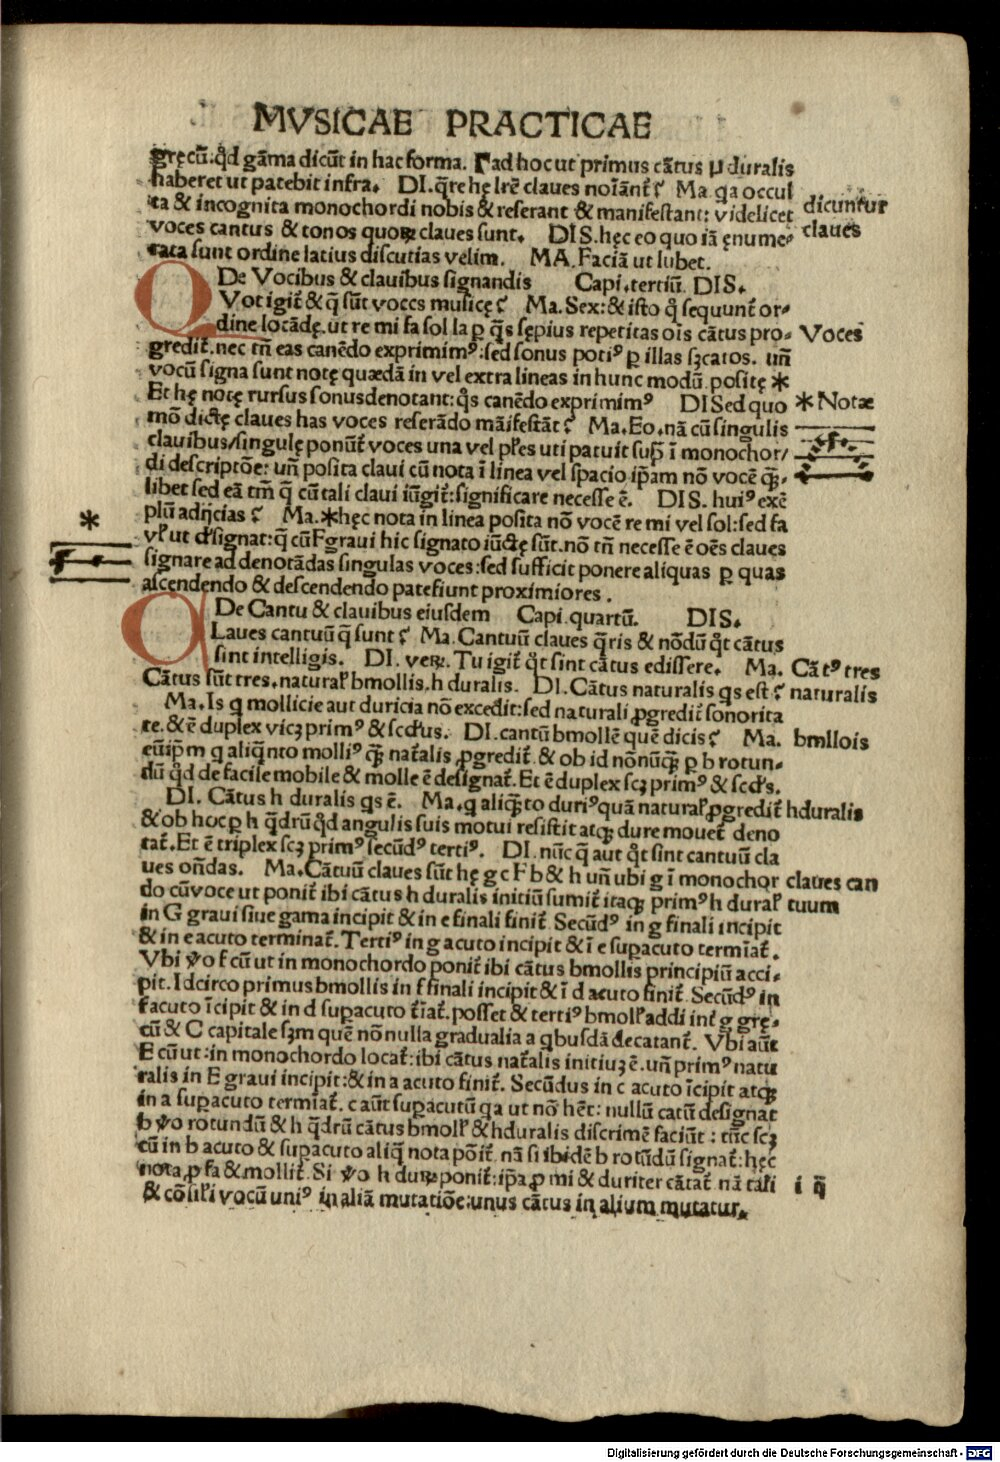 MVSICAE PRACTICAE
gręcū: qd gāma dicūt in hac forma. Γ ad hoc ut primus cātus ꝑ duralis
haberet ut patebit infra. DI. q̄re hę lrē claues noīant᷑ ⸮ Ma. qa occul
ta & incognita monochordi nobis & reserant & manifestant: videlicet
dicuntur
voces cantus & tonos quoꝝ claues sunt. DIS. hęc eo quo iā ęnume-
claues
rata sunt ordine latius discutias velim. MA. Faciā ut lubet.
De Vocibus & clauibus signandis Capi. tertiū. DIS.
QVot igit᷑ & q̄ sūt voces musicę ⸮ Ma. Sex: & isto q̊ sequunt᷑ or-
dine locādę. ut re mi fa sol la p q̄s sępius repetitas oīs cātus pro-
Voces
gredit᷑. nec tn̄ eas canēdo exprimimꝰ: sed sonus potiꝰ p illas sꝫcatos. un̄
vocū signa sunt notę quædā in vel extra lineas in hunc modū posite *
Et hę notę rursus sonus denotant: q̊s canēdo exprimimꝰ DI Sed quo
* Notæ
mō dictę claues has voces reserādo māifestāt ⸮ Ma. Eo. nā cū singulis
clauibus/singulę ponūt᷑ voces una vel pl̄es uti patuit sup̄ ī monochor/
di descriptōe: un̄ posita claui cū nota ī linea vel spacio ip̄am nō vocē q̄ꝫ-
libet sed eā tm̄ q̄ cū tali claui iūgit᷑: significare necesse ē. DIS. huiꝰ exē
plū adijcias ⸮ Ma. * hęc nota in linea posita nō vocē re mi vel sol: sed fa
*
vl̄ ut designat: q̄ cū F graui hic signato iūctę sūt. nō tn̄ necesse ē oēs claues
signare ad denotādas singulas voces: sed sufficit ponere aliquas p quas
ascendendo & descendendo patefiunt proximiores.
De Cantu & clauibus eiusdem Capi. quartū. DIS.
CLaues cantuū q̄ sunt ⸮ Ma. Cantuū claues q̄ris & nōdū q̊t cātus
sint intelligis. DI. veꝝ. Tu igit᷑ q̊t sint cātus edissere. Ma.
Cātꝰ tres
Cātus sūt tres. natural̄ bmollis. h duralis. DI. Cātus naturalis qs est ⸮
naturalis
Ma. Is q mollicie aut duricia nō excedit: sed naturali ꝓgredit᷑ sonorita
te. & ē duplex vicꝫ primꝰ & scdus. DI. cantū bmollē quē dicis ⸮ Ma.
bmllois
eūip̄m q aliq̄nto molliꝰ q̄ꝫ nat᷑alis ꝓgredit᷑. & ob id nōnūq̄ꝫ p b rotun-
dū q̊d de facile mobile & molle ē designat᷑. Et ē duplex scꝫ primꝰ & scds.
DI. Cātus h duralis qs ē. Ma. q aliq̄ꝫto duriꝰ quā natural̄ ꝓgredit᷑
hduralis
& ob hoc p h q̄drū q̊d angulis suis motui resistit atqꝫ dure mouet᷑ deno
tat᷑. Et ē triplex scꝫ primꝰ secūdꝰ tertiꝰ. DI. nūc q̄ aūt q̊t sint cantuū cla
ues on̄das. Ma. Cātuū claues sūt hę g c F b & h un̄ ubi g ī monochor
claues can
do cū voce ut ponit᷑ ibi cātus h duralis initiū sumit᷑ itaqꝫ primꝰ h dural̄
tuum
in G graui siue gama incipit & in e finali finit᷑. Secūdꝰ in g finali incipit
& in e acuto terminat᷑. Tertiꝰ in g acuto incipit & ī e supacuto termīat᷑.
Vbi v̊o f cū ut in monochordo ponit᷑ ibi cātus bmollis principiū acci-
pit. Idcirco primus bmollis in f finali incipit & ī d acuto finit᷑. Secūdꝰ in
f acuto īcipit & in d supacuto t᷑īat᷑. posset & tertiꝰ bmoll̄ addi int᷑ g gre-
cū & C capitale sꝫm quē nō nulla gradualia a qbusdā decatant᷑. Vbi aūt
E cū ut: in monochordo locat᷑: ibi cātus nat᷑alis initiuꝫ ē. un̄ primꝰ natu
ralis in E graui incipit: & in a acuto finit᷑. Secūdus in c acuto īcipit atqꝫ
in a supacuto termīat᷑. c aūt supacutū qa ut nō hēt: nullū catū designat
b v̊o rotundū & h q̄drū cātus bmoll̄ & hduralis discrimē faciūt: tūc scꝫ
cū in b acuto & supacuto aliq̄ nota pōit᷑. nā si ibidē b rotūdū signat᷑: hęc
nota ꝓ fa & mollit᷑. Si v̊o h duꝝ ponit᷑: ip̄a ꝓ mi & duriter cātat᷑. nā tāli
i q̄
& cōsil̄i vocū uniꝰ in aliā mutatiōe: unus cātus in alium mutatur.
Digitalisierung gefördert durch die Deutsche Forschungsgemeinschaft - DFG